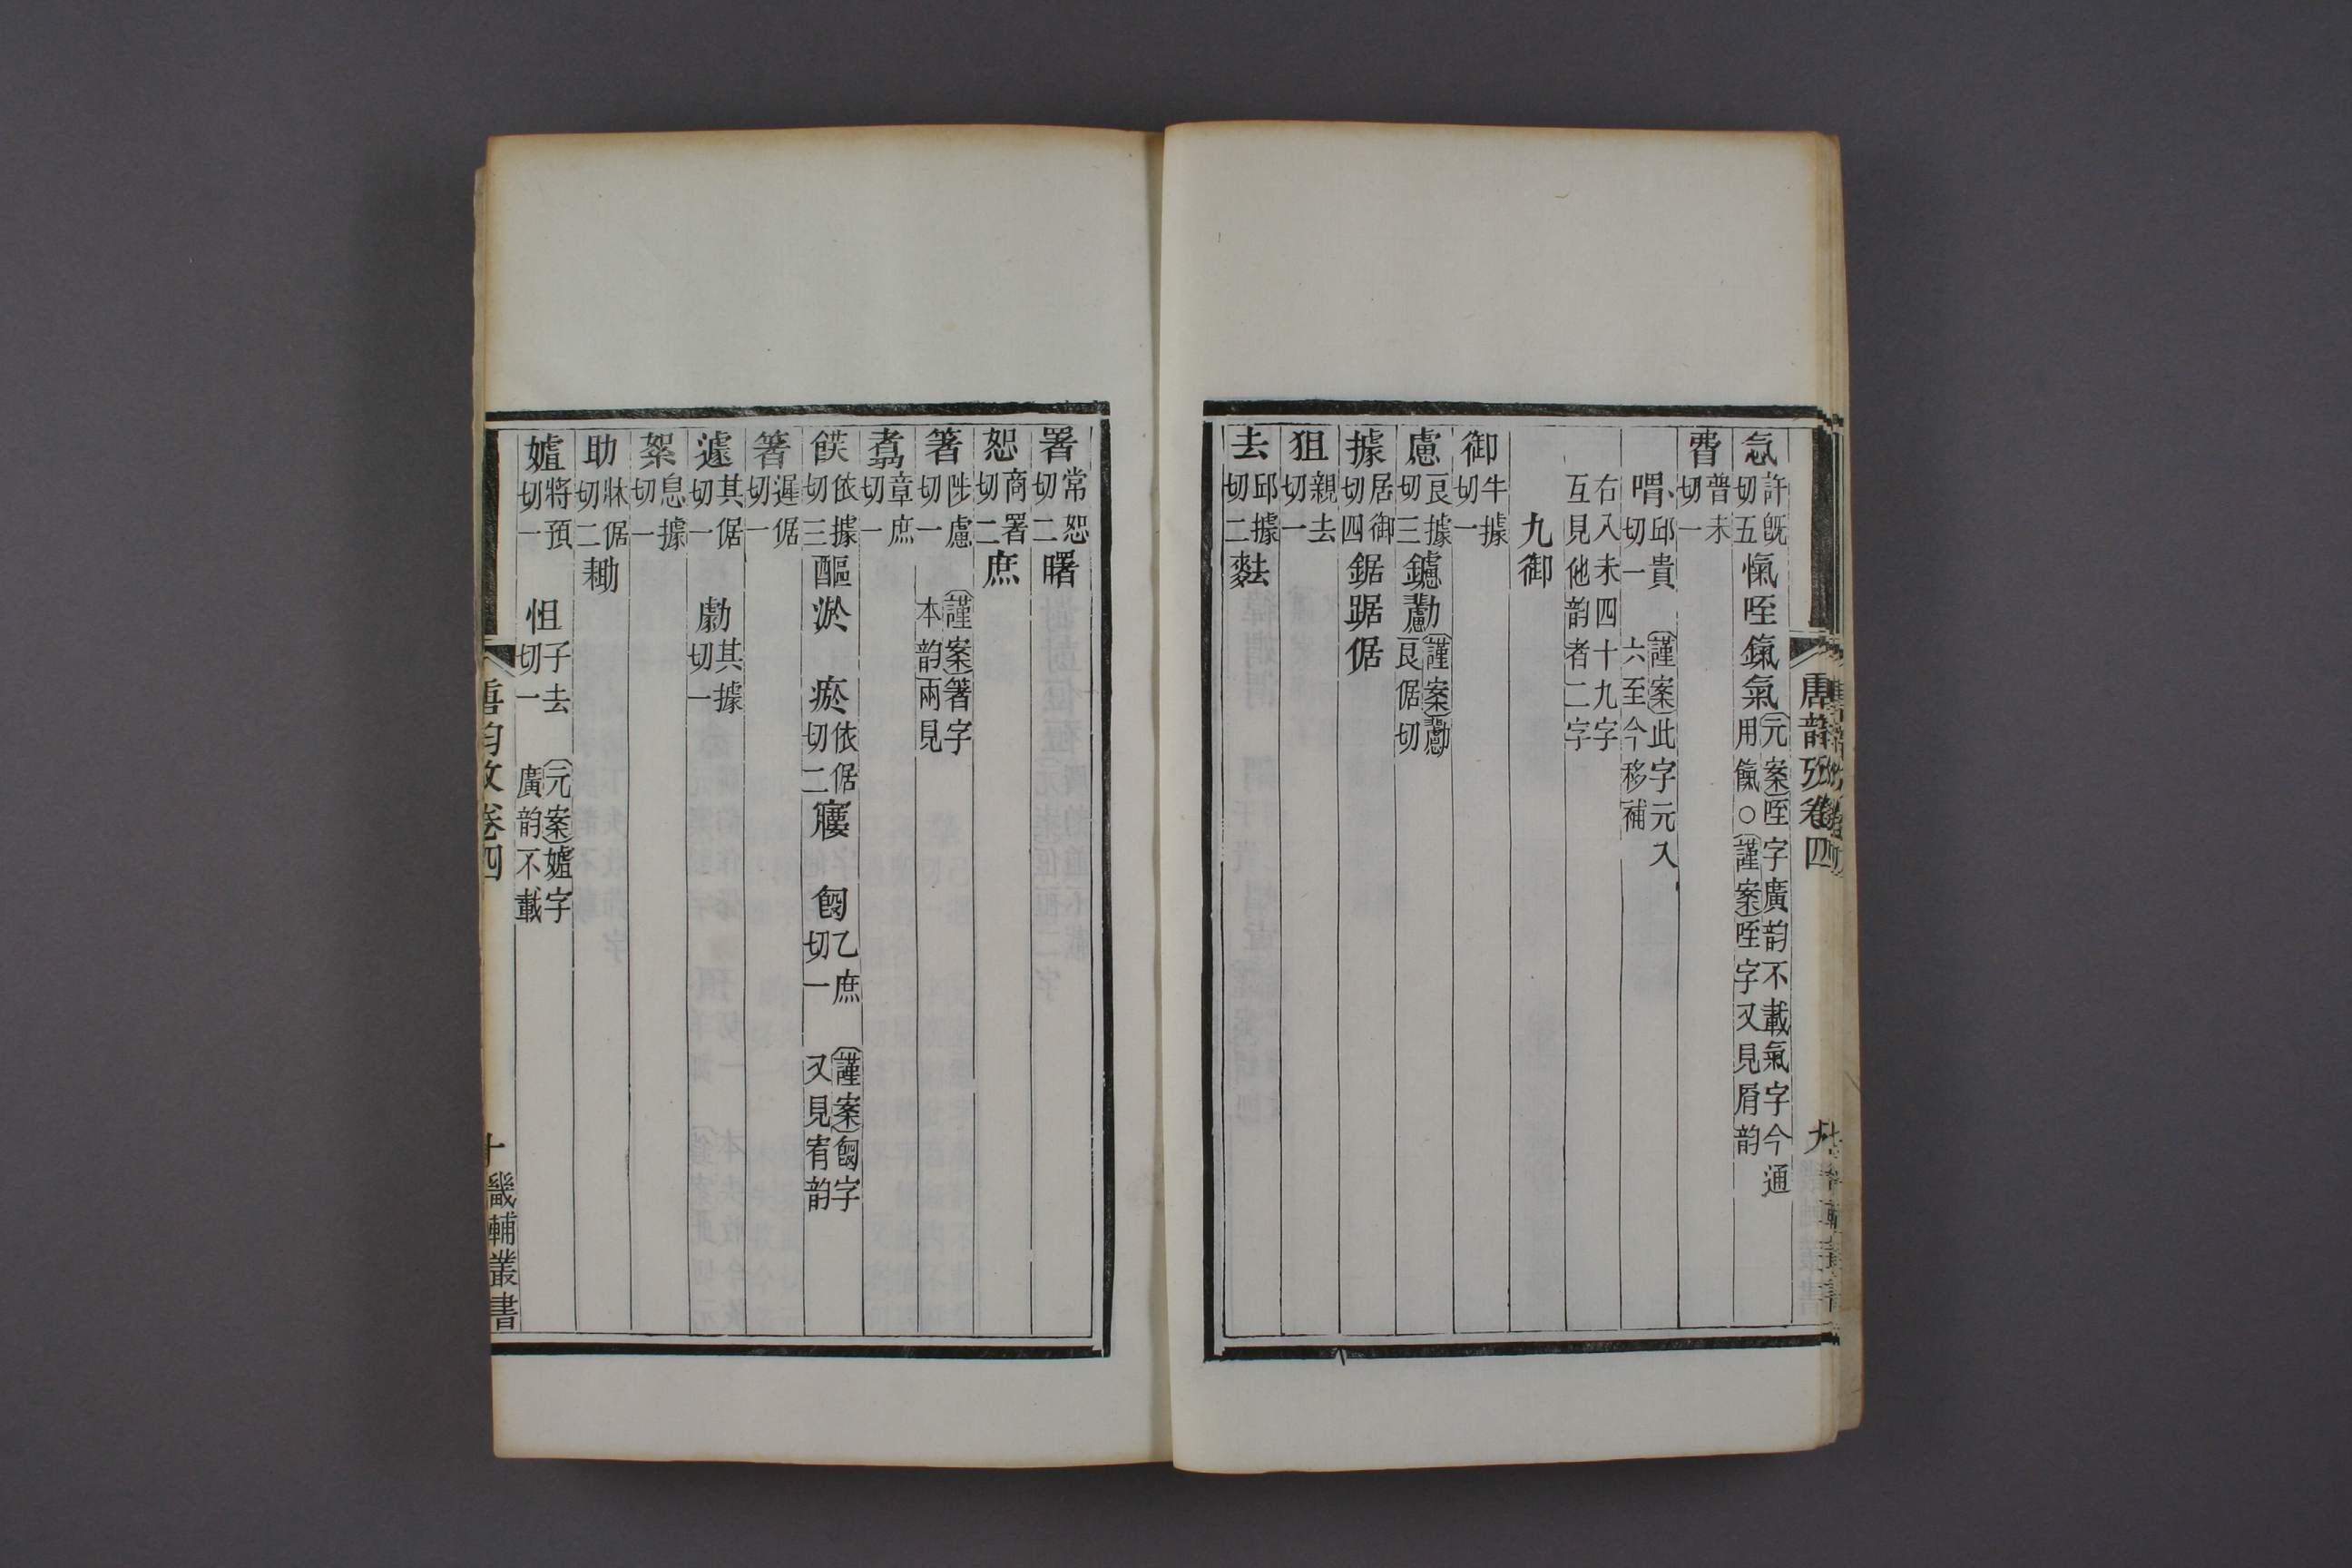 忥許旣切五愾咥鎎氣元案咥字廣韵不載氣字今通用餼○謹案咥字又見屑韵
費普未切一
喟邱貴切一謹案此字元入六至今移補
右入未四十九字互見他韵者二字
九御
御牛據切一
慮良據切三鑢勴謹案勴良倨切
據居御切四鋸踞倨
狙親去切一
去邱據切二麮
唐韵攷卷四
署常恕切二曙
恕商署切二庶
箸陟慮切一謹案箸字本韵兩見
翥章庶切一
䬇依據切三醧淤瘀依倨切二㾤䬕乙庶切一謹案䬕字又見宥韵
箸遲倨切一
遽其倨切一勮其據切一
絮息據切一
助牀倨切二耡
㜘將預切一怚子去切一元案㜘字廣韵不載
唐韵攷卷四
畿輔叢書